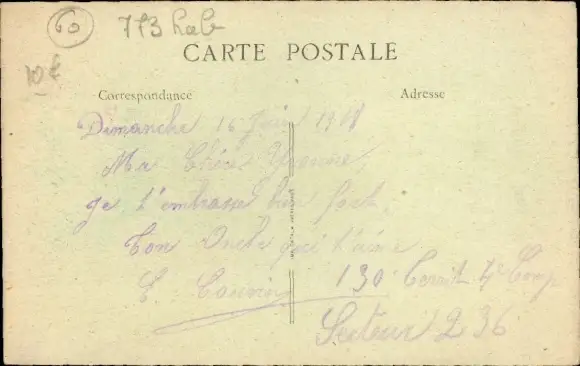 60
773
CARTE POSTALE
10 f
Correspondance
Adresse
Dimanche 16 Juin 1918
Ma Chère Yvonne,
je t'embrasse bien fort.
Ton Oncle qui t'aime
130 Territ 4e Comp
Secteur 236